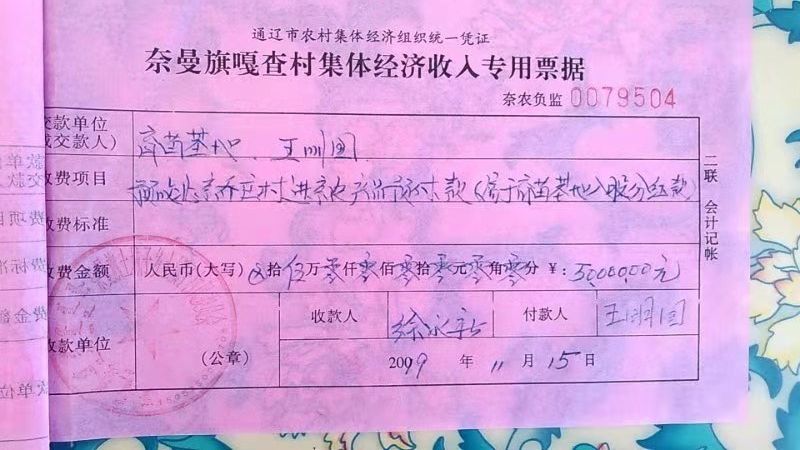 通辽市农村集体经济组织统一凭证
奈曼旗嘎查村集体经济收入专用票据
奈农负监 0079504
交款单位
(或交款人) 育苗基地、王明国
收费项目 京乔庄村进京农产品 付款(属于育苗基地入股分红款)
收费标准
收费金额 人民币(大写) ⊗拾伍万零仟零佰零拾零元零角零分 ¥: 50000.00元
收款单位 (公章) 收款人 徐永 付款人 王明国
2009 年 11 月 15 日
二联 会计记帐